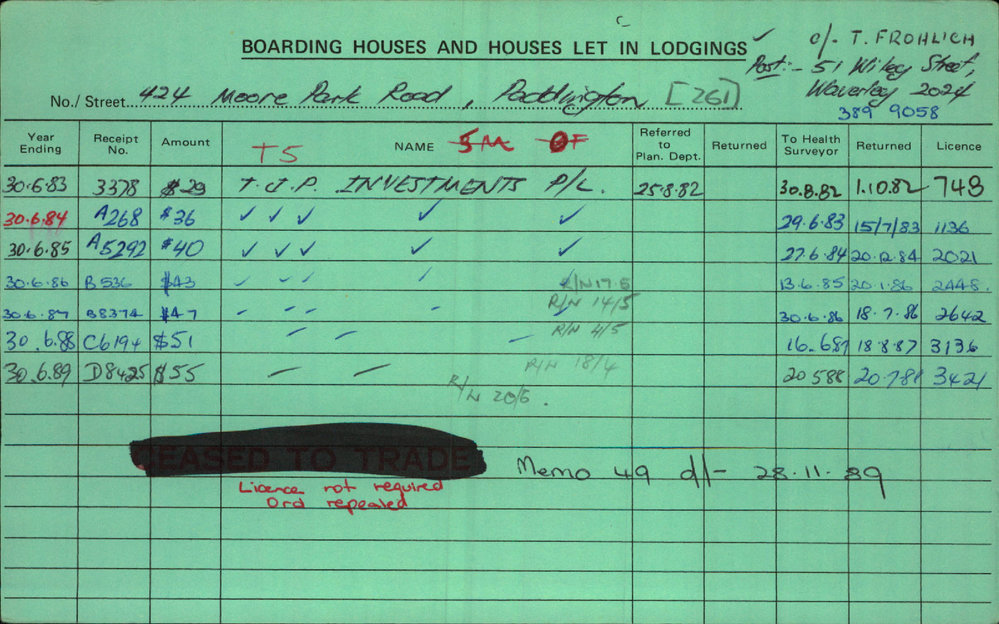 BOARDING HOUSES AND HOUSES LET IN LODGINGS
✓ c/- T. FROHLICH
Post:- 51 Wiley Street,
Waverley 2024
389 9058
No./Street. 424 Moore Park Road, Paddington [261]
Year Ending Receipt No. Amount TS NAME 5M OF Referred to Plan. Dept. Returned To Health Surveyor Returned Licence
30.6.83 3378 $29 T.J.P. INVESTMENTS P/L. 25.8.82 30.8.82 1.10.82 748
30.6.84 A268 $36 ✓ ✓ ✓ ✓ ✓ 29.6.83 15/7/83 1136
30.6.85 A5292 $40 ✓ ✓ ✓ ✓ ✓ 27.6.84 20.12.84 2021
30.6.86 B536 $43 R/N 17.5 13.6.85 20.1.86 2448.
30.6.87 B8374 $47 R/N 14/5 30.6.86 18.7.86 2642
30.6.88 C6194 $51 R/N 4/5 16.687 18.8.87 3136
30.6.89 D8425 $55 R/N 18/4 20588 20.788 3421
R/N 20/6.
CEASED TO TRADE
Memo 49 d/- 28.11.89
Licence not required
Ord repealed